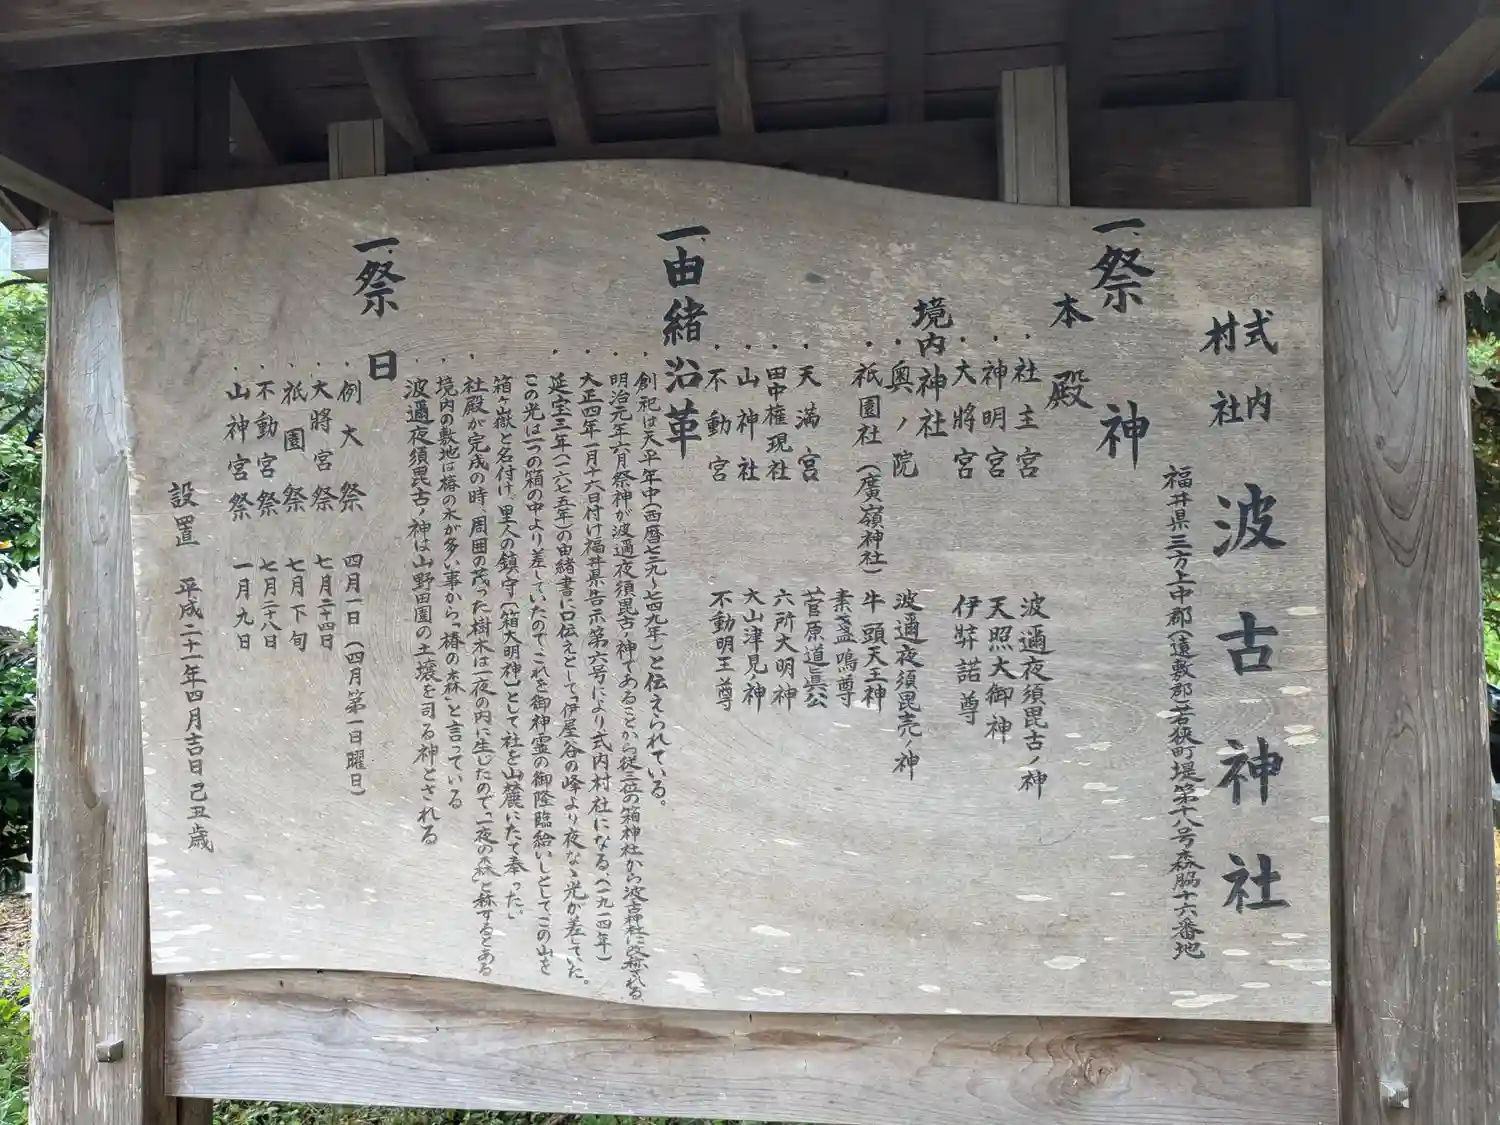 式内
村社
波古神社
福井県三方上中郡(遠敷郡)若狭町堤第十八号森脇十六番地
一、祭神
本殿
・社主宮 波邇夜須毘古ノ神
・神明宮 天照大御神
・大將宮 伊弉諾尊
境内神社
・奧ノ院 波邇夜須毘売ノ神
・祇園社(廣嶺神社) 牛頭天王神
素盞鳴尊
・天満宮 菅原道眞公
・田中権現社 六所大明神
・山神社 大山津見ノ神
・不動宮 不動明王尊
一、由緒沿革
・創祀は天平年中(西暦七二九〜七四九年)と伝えられている。
・明治元年六月祭神が波邇夜須毘古ノ神であることから従三位の箱神社から波古神社に改称される
・大正四年一月十六日付け福井県告示第六号により式内村社になる。(一九一四年)
・延宝三年(一六七五年)の由緒書に口伝えとして、「伊屋谷の峰より夜なゝ光が差していた。
この光は一つの箱の中より差していたのでこれを御神霊の御降臨給いしとしてこの山を
箱ヶ嶽と名付け、里人の鎮守〔箱大明神〕として社を山麓にたて奉った。」
・社殿が完成の時、周囲の茂った樹木は一夜の内に生じたので「一夜の森」と称するとある
・境内の敷地は椿の木が多い事から、「椿の森」と言っている
・波邇夜須毘古ノ神は山野田園の土壌を司る神とされる
一、祭日
・例大祭 四月一日(四月第一日曜日)
・大將宮祭 七月二四日
・祇園祭 七月下旬
・不動宮祭 七月二十八日
・山神宮祭 一月九日
設置 平成二十一年四月吉日己丑歳